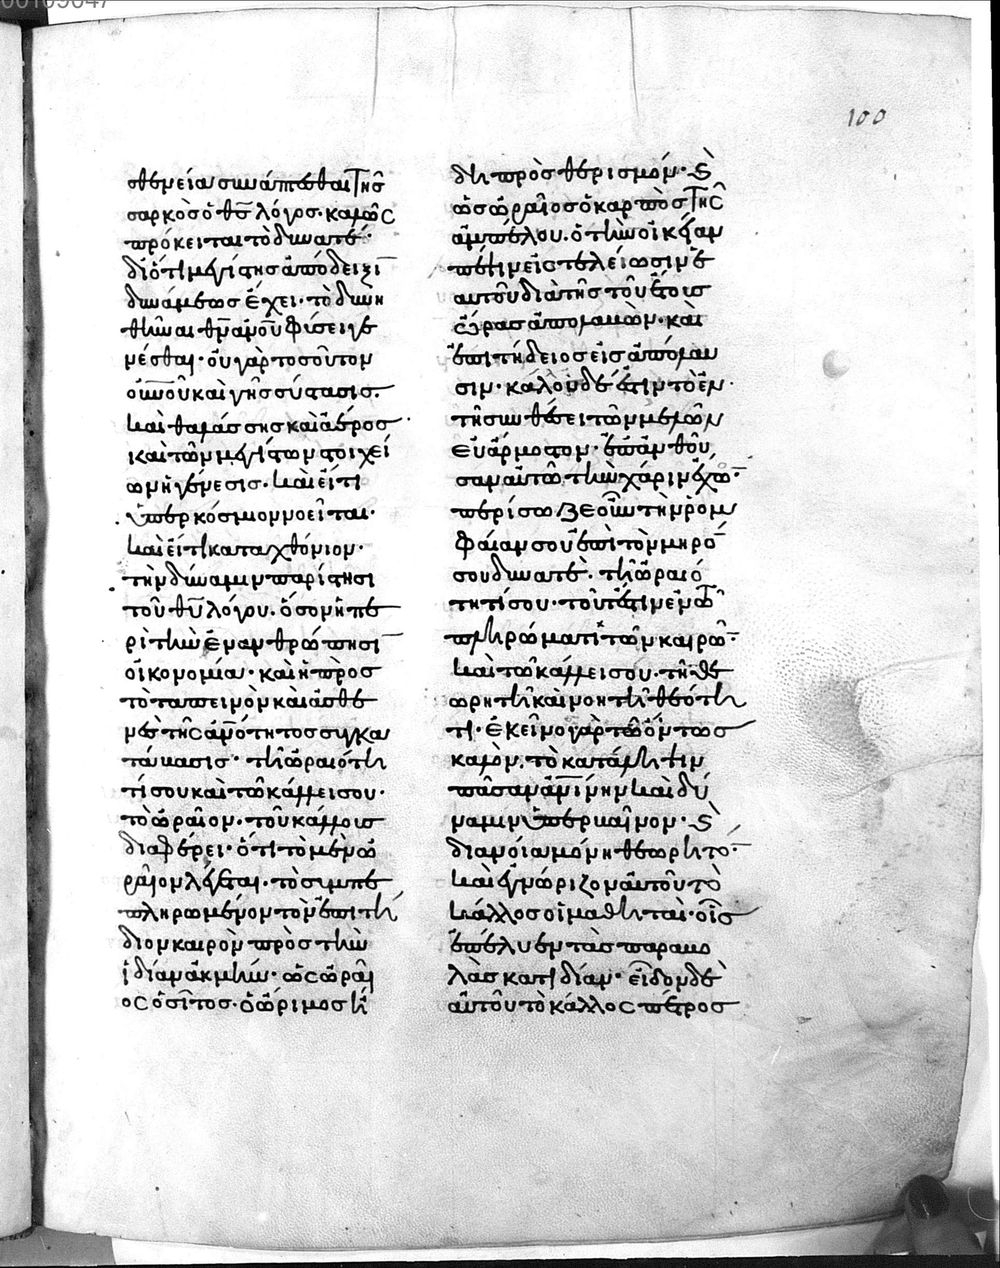 σθενεία συνάπτεσθαι τῆς
σαρκὸς ὁ θς λόγος· καλῶς
πρόκειται τὸ δυνατέ·
διότι μεγίστης ἀπόδειξι
δυνάμεως ἔχει· τὸ δυνη
θῆναι θν ἀνου φύσει γε
νέσθαι· οὐ γὰρ τοσοῦτον
οὐνοῦ καὶ γῆς σύστασις·
καὶ θαλάσσης καὶ ἀέρος
καὶ τῶν μεγίστων στοιχεί
ων ἡ γένεσις· καὶ εἴ τι
ὑπερκόσμιον νοεῖται·
καὶ εἴ τι καταχθόνιον·
τὴν δύναμιν παρίστησι
τοῦ θυ λόγου· ὅσον ἡ πε
ρὶ τὴν ἐνανθρώπησι
οἰκονομία· καὶ ἡ πρὸς
τὸ ταπεινὸν καὶ ἀσθε
νὲς τῆς ἀνότητος συγκα
τάβασις· τῆ ὡραιότη
τί σου καὶ τῶ κάλλει σου·
τὸ ὡραῖον· τοῦ κάλλους
διαφέρει· ὅτι τὸ μὲν ὡ
ραῖον λέγεται· τὸ συμπε
πληρωμένον τὸν ἐπιτή
διον καιρὸν πρὸς τὴν
ἰδίαν ἀκμήν· ὡς ὡραῖ
ος ὁ σῖτος· ὁ ὥριμος ἤ
δη πρὸς θερισμόν· καὶ
ὡς ὡραῖος ὁ καρπὸς τῆς
ἀμπέλου· ὁ τὴν οἰκείαν
πέψιν εἰς τελείωσιν ἑ
αυτοῦ διὰ τῆς τοῦ ἔτους
ὥρας ἀπολαβὼν· καὶ
ἐπιτήδειος εἰς ἀπόλαυ
σιν· κάλλος δέ ἐστιν τὸ ἐν
τῆ συνθέσει τῶν μελῶν
εὐάρμοστον· ἐπανθοῦ
σαν αὐτῶ τὴν χάριν ἔχω·
περίσωζε οὖν τὴν ῥομ
φαίαν σου ἐπὶ τὸν μηρό
σου δυνατέ· τῆ ὡραιό
τητί σου· τουτέστιν ἐν τῶ
πληρώματι τῶν καιρῶ·
καὶ τῶ κάλλει σου· τῆ θε
ωρητῆ καὶ νοητῆ θεότη
τι· ἐκεῖνο γὰρ τὸ ὄντως
καλόν· τὸ κατάληψιν
πᾶσαν ἀνίνην καὶ δύ
ναμιν ὑπερβαῖνον· καὶ
διανοία μόνη θεωρητό·
καὶ ἐγνώριζον αὐτοῦ τὸ
κάλλος οἱ μαθηταὶ· οἷς
ἐπέλυεν τὰς παραβο
λὰς κατιδίαν· εἶδον δὲ
αὐτοῦ τὸ κάλλος πέτρος
100